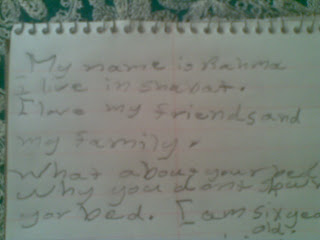 My name is Rahma
I live in Snabat.
I love my friends and
my family.
What about your bed
Why you dont
your bed. I am six yea
old.